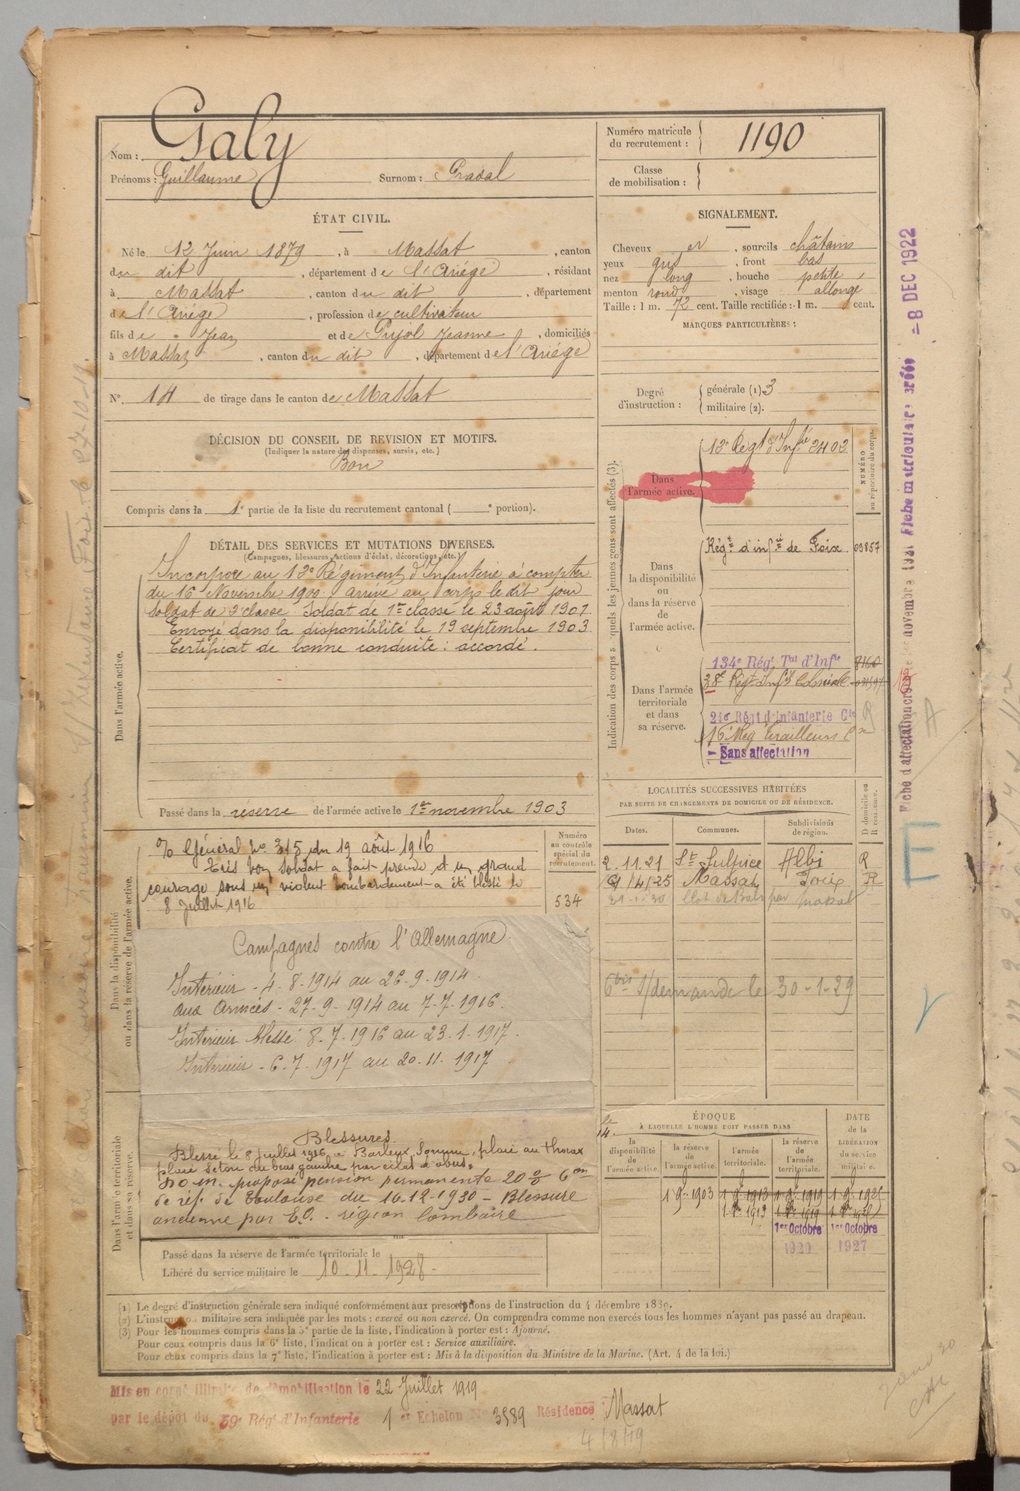 Nom : Galy
Prénoms : Guillaume Surnom : Gradal
Numéro matricule du recrutement : 1190
Classe de mobilisation :
ÉTAT CIVIL.
Né le 12 Juin 1879, à Massat, canton
du dit, département de l'Ariége, résidant
à Massat, canton du dit, département
de l'Ariége, profession de cultivateur
fils de Jean et de Pujol Jeanne, domiciliés
à Massat, canton du dit, département de l'Ariége
N° 14 de tirage dans le canton de Massat
DÉCISION DU CONSEIL DE REVISION ET MOTIFS.
(Indiquer la nature des dispenses, sursis, etc.)
Bon
Compris dans la 1e partie de la liste du recrutement cantonal ( e portion).
DÉTAIL DES SERVICES ET MUTATIONS DIVERSES.
(Campagnes, blessures, actions d'éclat, décorations, etc.)
Dans l'armée active.
Incorporé au 13e Régiment d'Infanterie à compter
du 16 Novembre 1900 arrivé au corps le dit jour
soldat de 2e classe. Soldat de 1re classe le 23 août 1901.
Envoyé dans la disponibilité le 19 septembre 1903.
Certificat de bonne conduite : accordé.
Passé dans la réserve de l'armée active le 1er novembre 1903
Dans la disponibilité
ou dans la réserve de l'armée active.
Numéro
au contrôle
spécial du
recrutement.
534
O/ Général No 315 du 19 août 1916
Très bon soldat a fait preuve et un grand
courage sous un violent bombardement a été blessé le
8 Juillet 1916
Campagnes contre l'Allemagne
Intérieur - 4.8.1914 au 26.9.1914.
aux Armées - 27.9.1914 au 7.7.1916.
Intérieur blessé 8.7.1916 au 23.1.1917.
Intérieur - 6.7.1917 au 20.11.1917
Dans l'armée territoriale
et dans sa réserve.
Blessures
Blessé le 8 juillet 1916, à Barleux, Somme, plaie au thorax
plaie séton du bras gauche par éclat d'obus.
proposé pension permanente 20 %
de réf. de Toulouse du 16.12.1930 - Blessure
ancienne par E.O. région lombaire
Passé dans la réserve de l'armée territoriale le
Libéré du service militaire le 10-11-1928.
SIGNALEMENT.
Cheveux et, sourcils châtains
yeux gris, front bas
nez long, bouche petite
menton rond, visage allongé
Taille : 1 m. 72 cent. Taille rectifiée : 1 m. cent.
MARQUES PARTICULIÈRES :
Degré d'instruction : générale (1) 3
militaire (2).
Indication des corps auxquels les jeunes gens sont affectés (3).
NUMÉRO
au répertoire du corps.
Dans
l'armée active.
13e Régt d'Infie 3403
Dans
la disponibilité
ou
dans la réserve
de
l'armée active.
Régt d'infrie de Foix. 09857
Dans l'armée
territoriale
et dans
sa réserve.
134e Régt Tal d'Infie 7160
38e Régt Infie Coloniale
24e Régt d'Infanterie Cle
16e Rég Tirailleurs
- Sans affectation
LOCALITÉS SUCCESSIVES HABITÉES
PAR SUITE DE CHANGEMENTS DE DOMICILE OU DE RÉSIDENCE.
Dates. Communes. Subdivisions de région. D domicile ou R résidence.
2.11.21 St Sulpice Albi R
19/4/25 Massat Foix R
6bis s/demande le 30-1-29
ÉPOQUE
À LAQUELLE L'HOMME DOIT PASSER DANS
DATE
de la
LIBÉRATION
du service
militaire.
la disponibilité de l'armée active.
la réserve de l'armée active.
l'armée territoriale.
la réserve de l'armée territoriale.
1.9.1903
1er Octobre 1er Octobre
1927
(1) Le degré d'instruction générale sera indiqué conformément aux prescriptions de l'instruction du 4 décembre 1889.
(2) L'instruction militaire sera indiquée par les mots : exercé ou non exercé. On comprendra comme non exercés tous les hommes n'ayant pas passé au drapeau.
(3) Pour les hommes compris dans la 5e partie de la liste, l'indication à porter est : Ajourné.
Pour ceux compris dans la 6e liste, l'indication à porter est : Service auxiliaire.
Pour ceux compris dans la 7e liste, l'indication à porter est : Mis à la disposition du Ministre de la Marine. (Art. 4 de la loi.)
Mis en congé illimité de démobilisation le 22 Juillet 1919
par le dépôt du 59e Rég. d'Infanterie 1er Echelon No 3589 Résidence Massat
4/8/19
- 8 DEC 1922